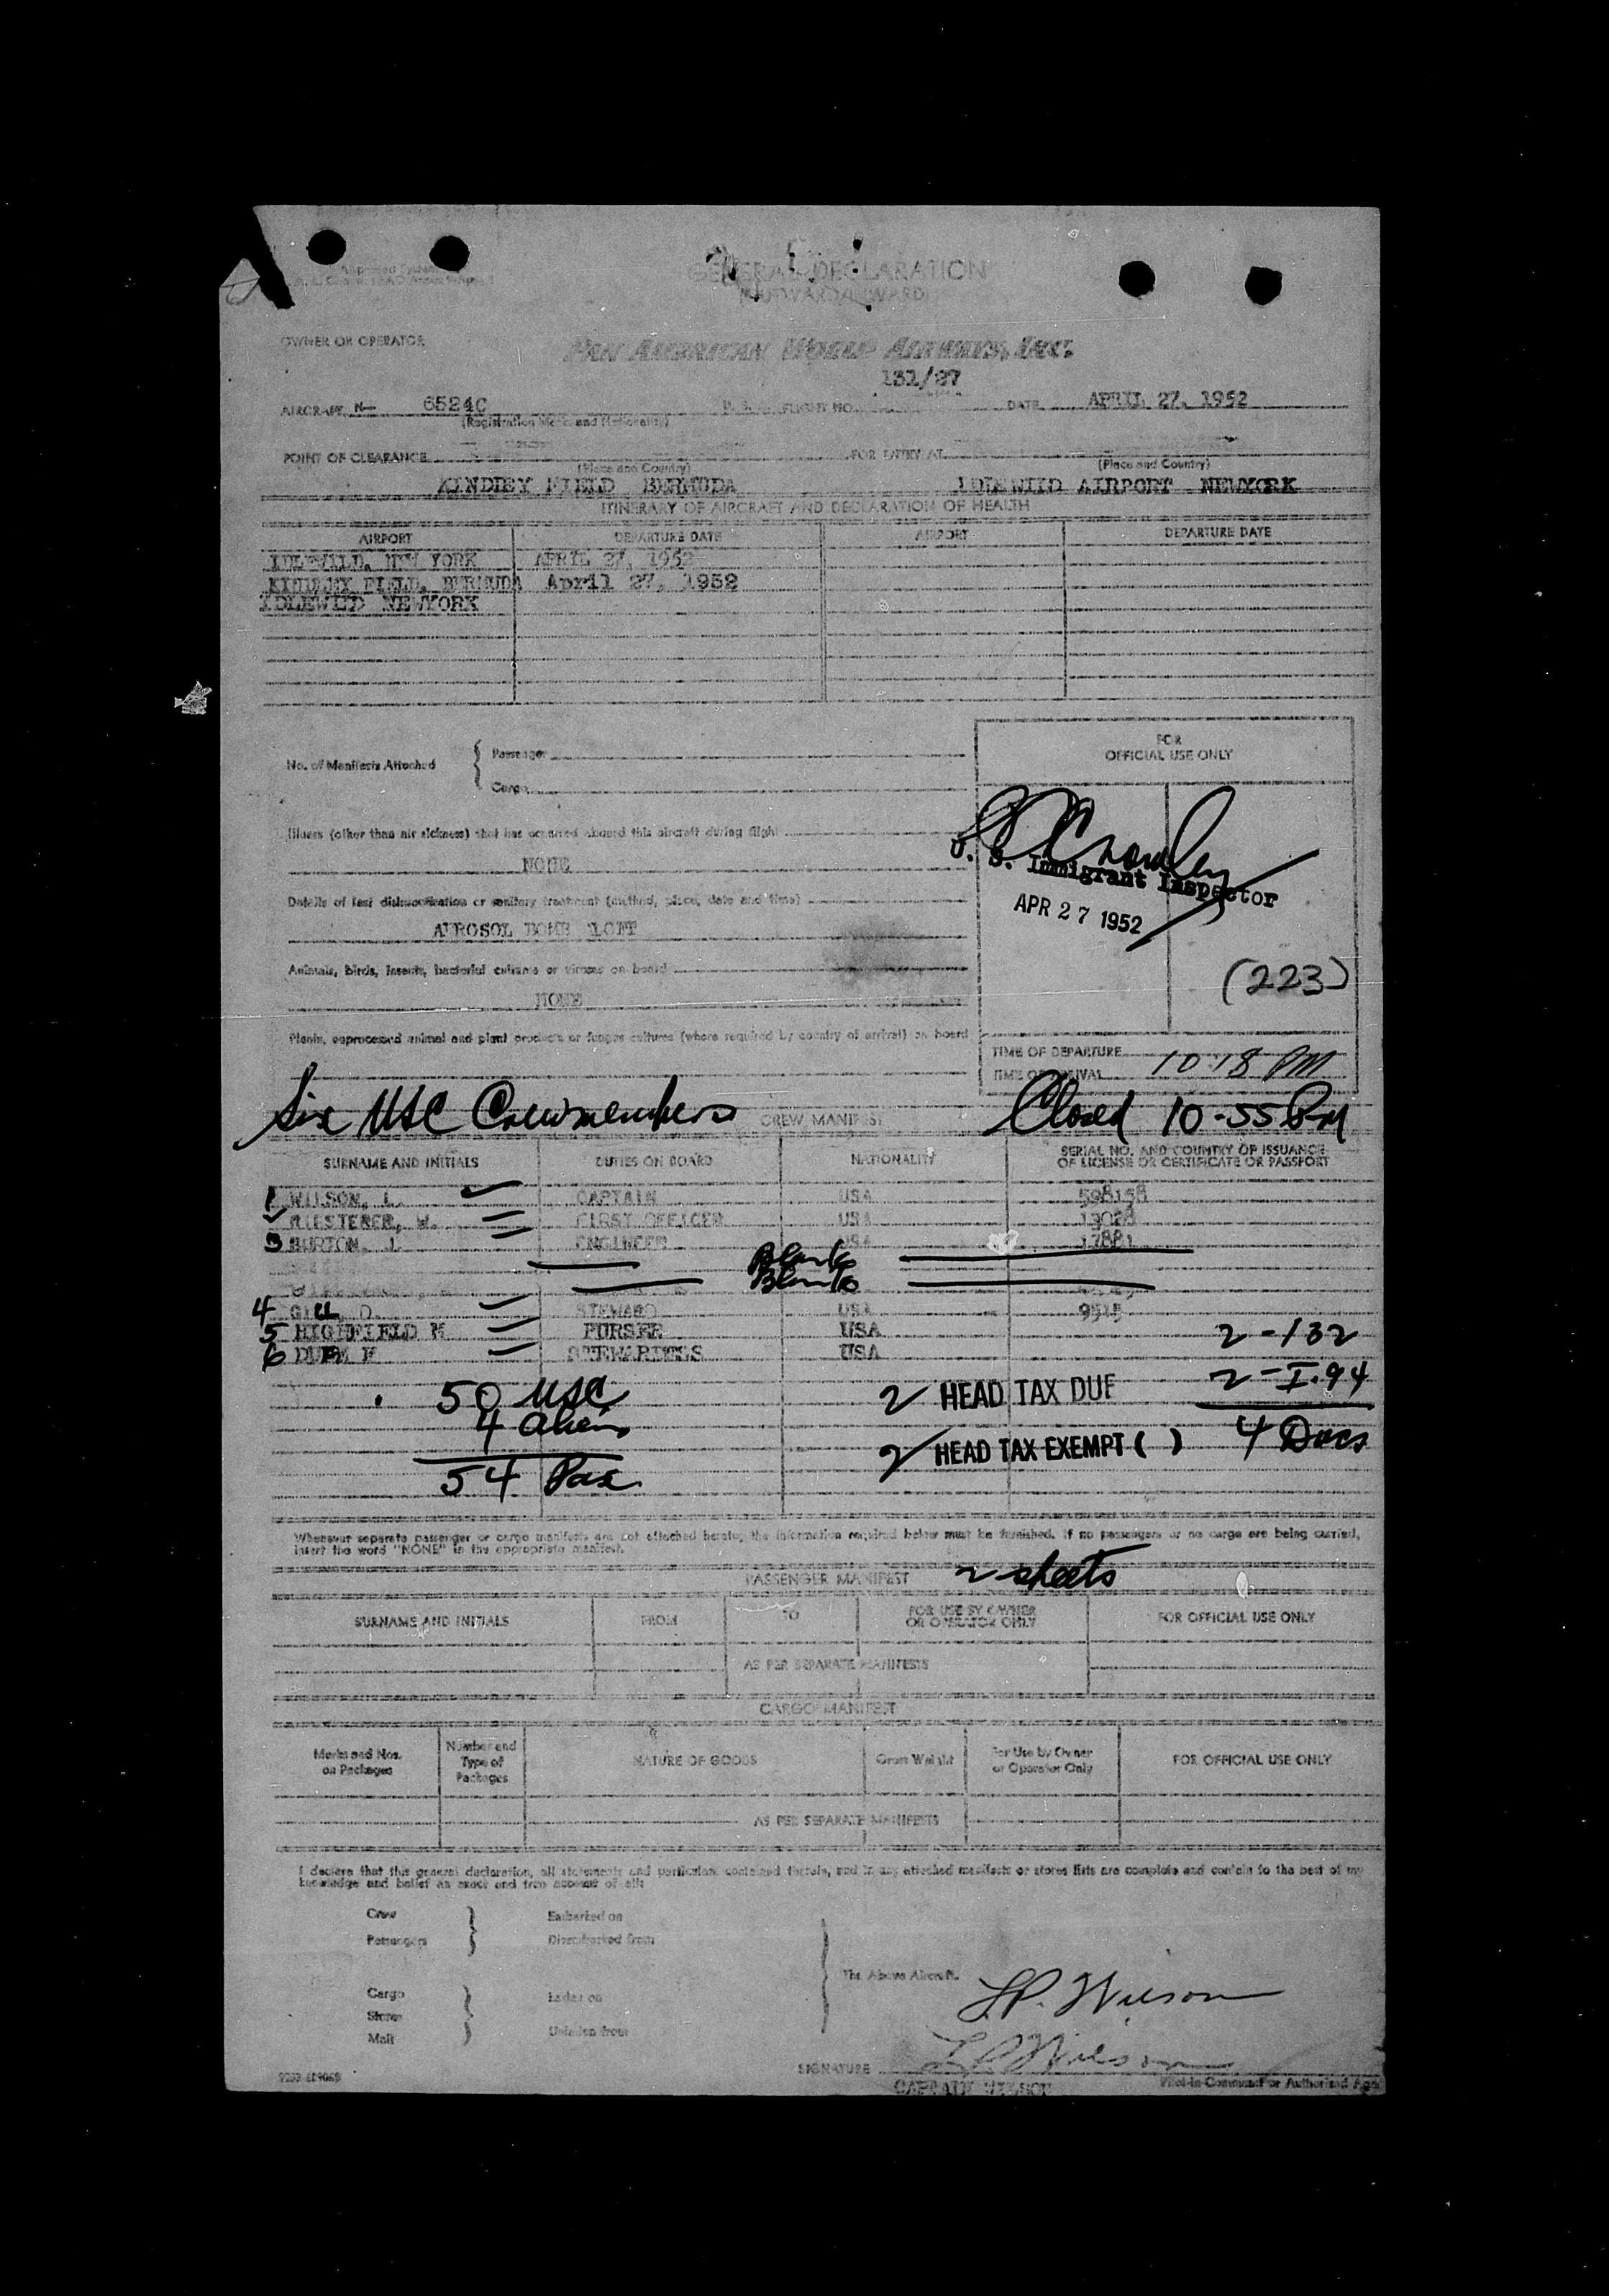 GENERAL DECLARATION
(OUTWARD/INWARD)
OWNER OR OPERATOR
PAN AMERICAN WORLD AIRWAYS, INC.
131/27
AIRCRAFT N- 6524C U. S. FLIGHT NO. DATE APRIL 27, 1952
(Registration Mark and Nationality)
POINT OF CLEARANCE FOR ENTRY AT
(Place and Country) (Place and Country)
KINDLEY FIELD BERMUDA IDLEWILD AIRPORT NEWYORK
ITINERARY OF AIRCRAFT AND DECLARATION OF HEALTH
AIRPORT DEPARTURE DATE AIRPORT DEPARTURE DATE
IDLEWILD, NEW YORK APRIL 27, 1952
KINDLEY FIELD, BERMUDA April 27, 1952
IDLEWILD NEWYORK
FOR
OFFICIAL USE ONLY
No. of Manifests Attached { Passenger
Cargo
Illness (other than air sickness) that has occurred aboard this aircraft during flight
NONE
U. S. Immigrant Inspector
APR 27 1952
Details of last disinsectization or sanitary treatment (method, place, date and time)
AEROSOL BOMB
(223)
Animals, birds, insects, bacterial cultures or viruses on board
NONE
Plants, unprocessed animal and plant products or fungus cultures (where required by country of arrival) on board
TIME OF DEPARTURE
TIME OF ARRIVAL 10:18 PM
Six USC Crewmembers CREW MANIFEST Closed 10-55 PM
SURNAME AND INITIALS DUTIES ON BOARD NATIONALITY SERIAL NO. AND COUNTRY OF ISSUANCE
OF LICENSE OR CERTIFICATE OR PASSPORT
1 WILSON, L. CAPTAIN USA 598158
2 RIESTERER, W. FIRST OFFICER USA 13028
3 BURTON, J. ENGINEER USA 17881
Blank
Blank
4 GILL, D. STEWARD USA 9515
5 HIGHFIELD M PURSER USA 2-132
6 STEWARDESS USA
50 USC 2 HEAD TAX DUE 2-I.94
4 Aliens 2 HEAD TAX EXEMPT ( ) 4 Docs
54 Pax
Whenever separate passenger or cargo manifests are not attached hereto, the information required below must be furnished. If no passengers or no cargo are being carried,
insert the word "NONE" in the appropriate manifest.
PASSENGER MANIFEST 2 sheets
SURNAME AND INITIALS FROM TO FOR USE BY OWNER
OR OPERATOR ONLY FOR OFFICIAL USE ONLY
AS PER SEPARATE MANIFESTS
CARGO MANIFEST
Marks and Nos.
on Packages Number and
Type of
Packages NATURE OF GOODS Gross Weight For Use by Owner
or Operator Only FOR OFFICIAL USE ONLY
AS PER SEPARATE MANIFESTS
I declare that this general declaration, all statements and particulars contained therein, and in any attached manifests or stores lists are complete and contain to the best of my
knowledge and belief an exact and true account of all:
Crew Embarked on
Passengers Disembarked from
The Above Aircraft.
Cargo Laden on
Stores
Mail Unladen from
L.P. Wilson
SIGNATURE L P Wilson
CAPTAIN WILSON Pilot-in-Command or Authorized Agent